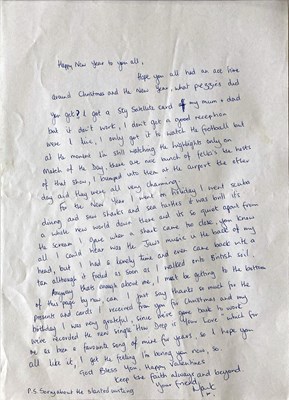 Happy New Year to you all,
Hope you all had an ace time
around Christmas and the New Year, what pezzies did
you get? I got a Sky Satellite card off my mum & dad
but it don't work, I don't get a good reception
were I live, I only got it to watch the football but
at the moment I'm still watching the highlights only on
Match of the Day, there are nice bunch of fella's the hosts
of that show, I bumped into them at the airport the other
day and they were all very charming.
For the New Year I went on holiday I went scuba
diving and saw sharks and sea turtles it was brill its
a whole new world down there and its so quiet apart from
the scream I gave when a shark came too close, you know
all I could hear was the Jaws music in the back of my
head, but I had a lovely time and even came back with a
tan although it faded as soon as I walked onto British soil.
Anyway that's enough about me, I must be getting to the bottom
of this page by now, can I just say thanks so much for the
presents and cards I received from you for Christmas and my
birthday I was very grateful, since were gone back to work
we've recorded the new single How Deep is Your Love which for
me as been a favourite song of mine for years, so I hope you
all like it, I get the feeling I'm boring you now, so.
God Bless You, Happy Valentines
Keep the faith always and beyond
Your friend,
Mark
P.S. Sorry about the slanted writing